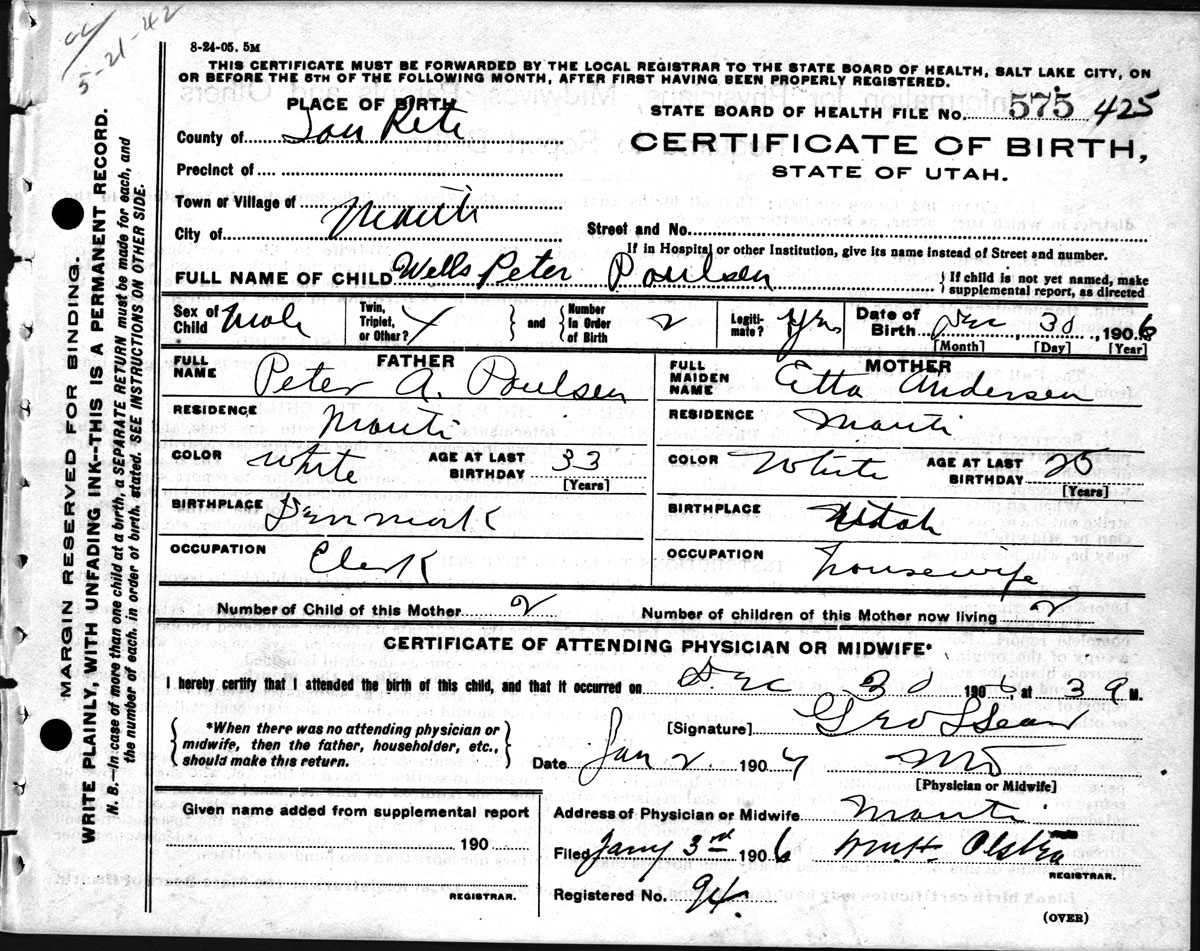 5-21-42
8-24-05. 5M
THIS CERTIFICATE MUST BE FORWARDED BY THE LOCAL REGISTRAR TO THE STATE BOARD OF HEALTH, SALT LAKE CITY, ON
OR BEFORE THE 5TH OF THE FOLLOWING MONTH, AFTER FIRST HAVING BEEN PROPERLY REGISTERED.
PLACE OF BIRTH
STATE BOARD OF HEALTH FILE No. 575 425
County of San Pete
CERTIFICATE OF BIRTH,
STATE OF UTAH.
Precinct of
Town or Village of Manti
City of
Street and No.
If in Hospital or other Institution, give its name instead of Street and number.
FULL NAME OF CHILD Wells Peter Poulsen { If child is not yet named, make supplemental report, as directed
Sex of Child Male Twin, Triplet, or Other? } and { Number In Order of Birth 2 Legiti-mate? Yes Date of Birth Dec 30, 1906
[Month] [Day] [Year]
FATHER
FULL NAME Peter A. Poulsen
RESIDENCE Manti
COLOR White AGE AT LAST BIRTHDAY 33
[Years]
BIRTHPLACE Denmark
OCCUPATION Clerk
MOTHER
FULL MAIDEN NAME Etta Andersen
RESIDENCE Manti
COLOR White AGE AT LAST BIRTHDAY 25
[Years]
BIRTHPLACE Utah
OCCUPATION Housewife
Number of Child of this Mother 2 Number of children of this Mother now living 2
CERTIFICATE OF ATTENDING PHYSICIAN OR MIDWIFE*
I hereby certify that I attended the birth of this child, and that it occurred on Dec 30 1906, at 3 A M.
{ *When there was no attending physician or midwife, then the father, householder, etc., should make this return. }
[Signature] Geo
Date Jan 2. 1907 MD
[Physician or Midwife]
Given name added from supplemental report
190
REGISTRAR.
Address of Physician or Midwife Manti
Filed Jany 3rd 1906
REGISTRAR.
Registered No. 94.
(OVER)
MARGIN RESERVED FOR BINDING.
WRITE PLAINLY, WITH UNFADING INK--THIS IS A PERMANENT RECORD.
N. B.—In case of more than one child at a birth, a SEPARATE RETURN must be made for each, and
the number of each, in order of birth, stated. SEE INSTRUCTIONS ON OTHER SIDE.